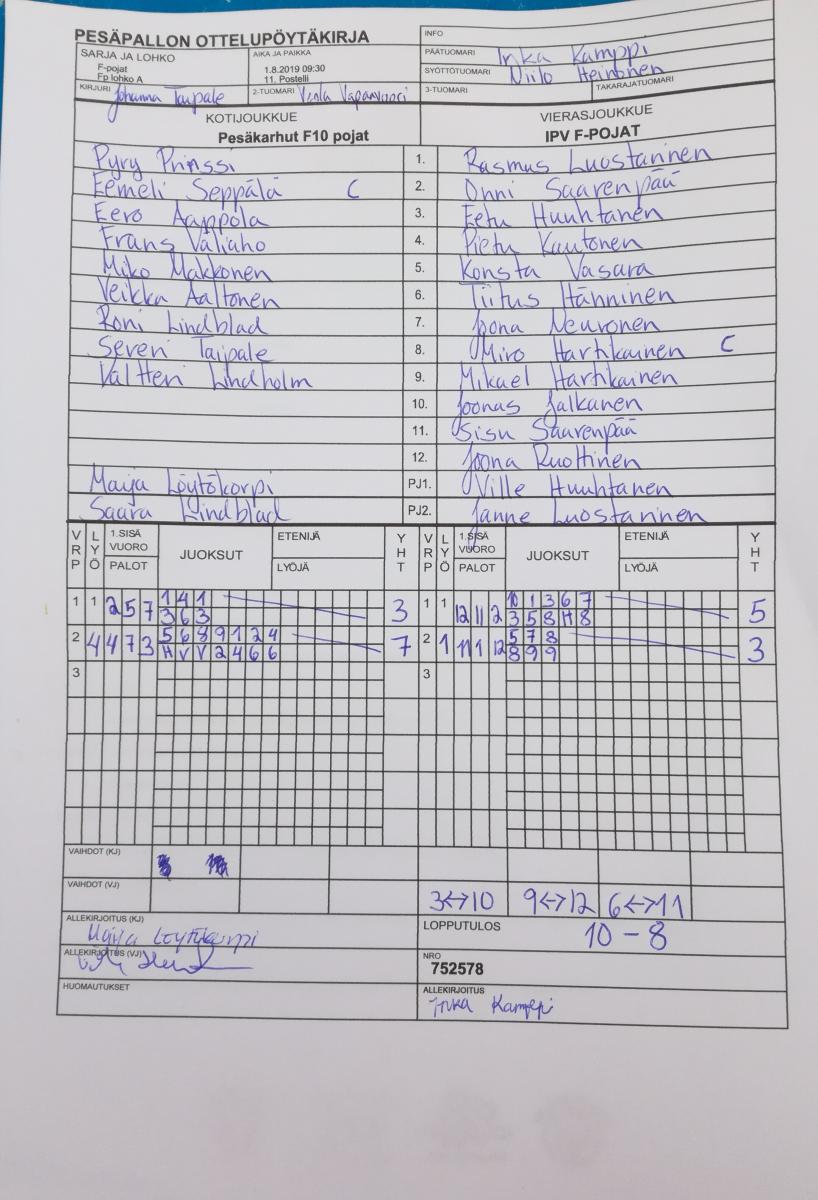 PESÄPALLON OTTELUPÖYTÄKIRJA
INFO
SARJA JA LOHKO
F-pojat
Fp lohko A
AIKA JA PAIKKA
1.8.2019 09:30
11. Postelli
PÄÄTUOMARI Inka Kamppi
SYÖTTÖTUOMARI Niilo Heinonen
KIRJURI Johanna Taipale
2-TUOMARI Venla
3-TUOMARI
TAKARAJATUOMARI
KOTIJOUKKUE
Pesäkarhut F10 pojat
VIERASJOUKKUE
IPV F-POJAT
Pyry Prinssi 1. Rasmus Luostarinen
Eemeli Seppälä C 2. Onni Saarenpää
Eero Aappola 3. Eetu Huuhtanen
Frans Väliaho 4. Pietu Kautonen
Miko Makkonen 5. Konsta Vasara
Veikka Aaltonen 6. Tiitus Hänninen
Roni Lindblad 7. Joona Neuvonen
Severi Taipale 8. Miro Hartikainen C
Valtteri Lindholm 9. Mikael Hartikainen
10. Joonas Jalkanen
11. Sisu Saarenpää
12. Joona Ruottinen
Maija Löytökorpi PJ1. Ville Huuhtanen
Saara Lindblad PJ2. Janne Luostarinen
VRP LYÖ 1.SISÄ VUORO PALOT JUOKSUT ETENIJÄ LYÖJÄ YHT VRP LYÖ 1.SISÄ VUORO PALOT JUOKSUT ETENIJÄ LYÖJÄ YHT
1 1 2 5 7 1 4 1 3 1 1 12 11 2 10 1 3 6 7 5
3 6 3 3 5 8 H 8
2 4 4 7 3 5 6 8 9 1 2 4 7 2 1 11 1 12 5 7 8 3
H V V 2 4 6 6 8 9 9
3 3
VAIHDOT (KJ)
VAIHDOT (VJ) 3↔10 9↔12 6↔11
ALLEKIRJOITUS (KJ) Maija Löytökorpi
LOPPUTULOS 10 - 8
ALLEKIRJOITUS (VJ)
NRO
752578
HUOMAUTUKSET
ALLEKIRJOITUS
Inka Kamppi